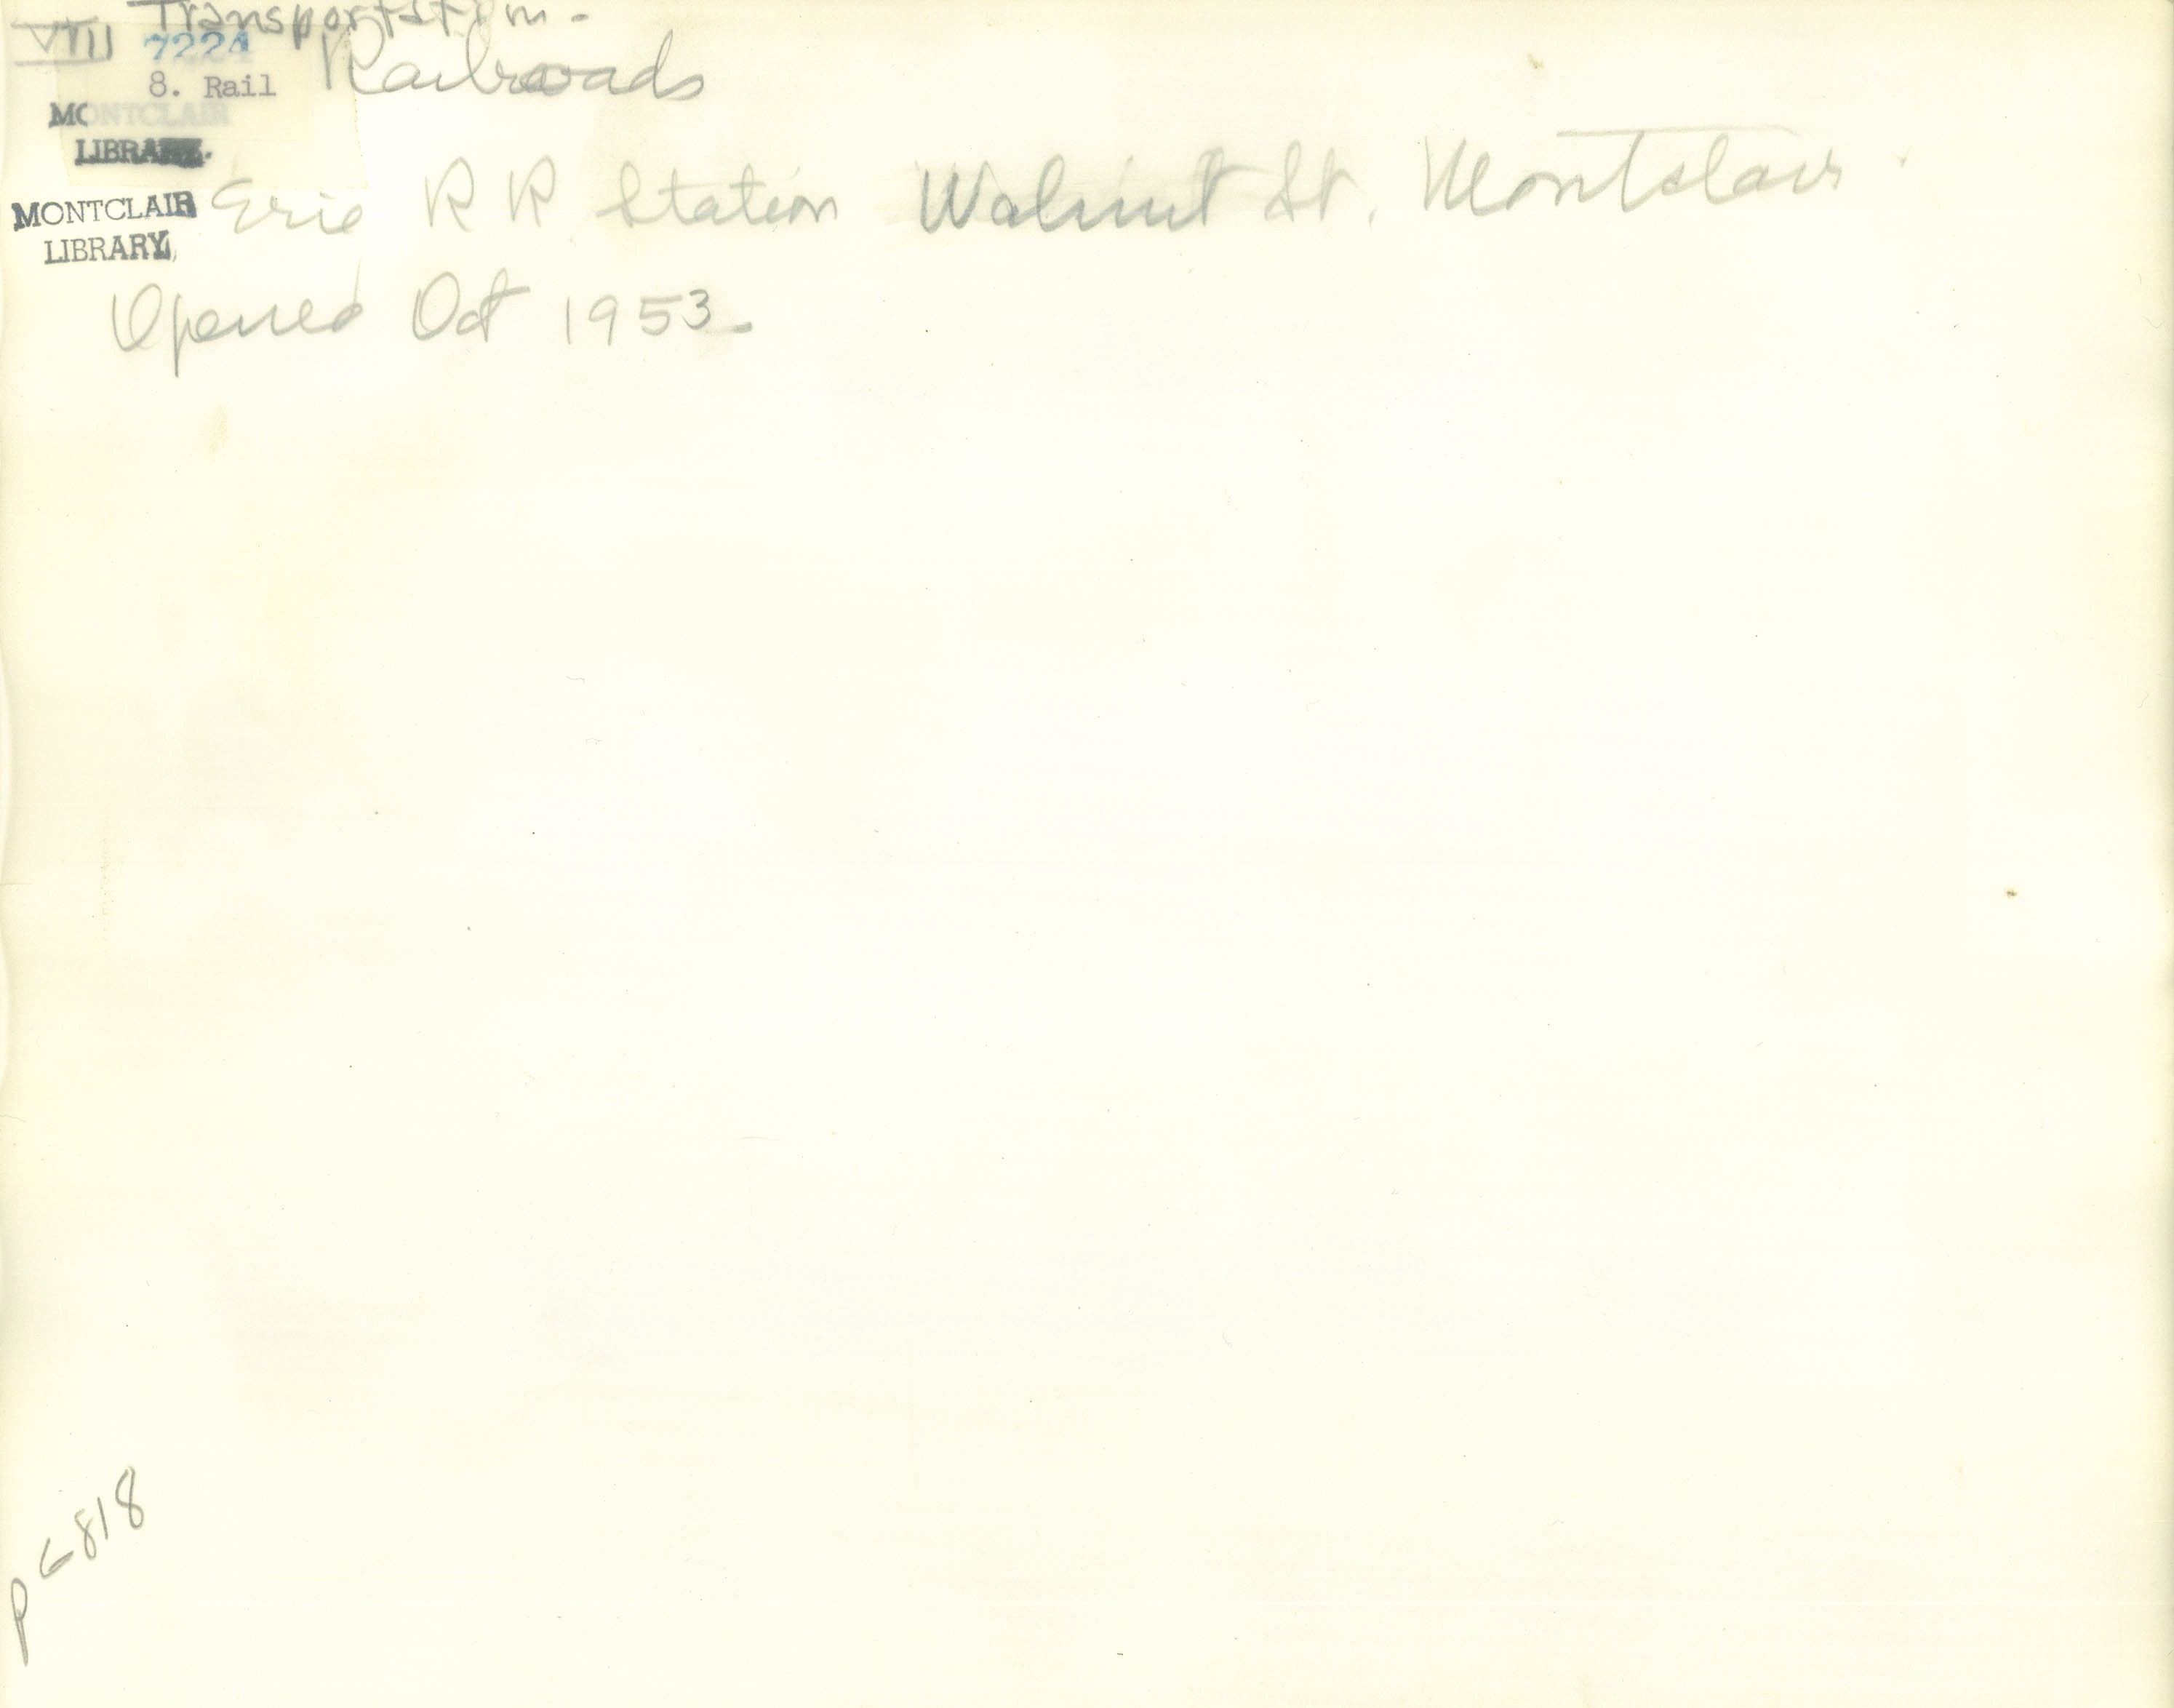 Transportation -
VIII 7224 Railroads
8. Rail
MONTCLAIR
LIBRARY.
MONTCLAIR
LIBRARY
Erie R R Station Walnut St. Montclair
Opened Oct 1953
P 6818